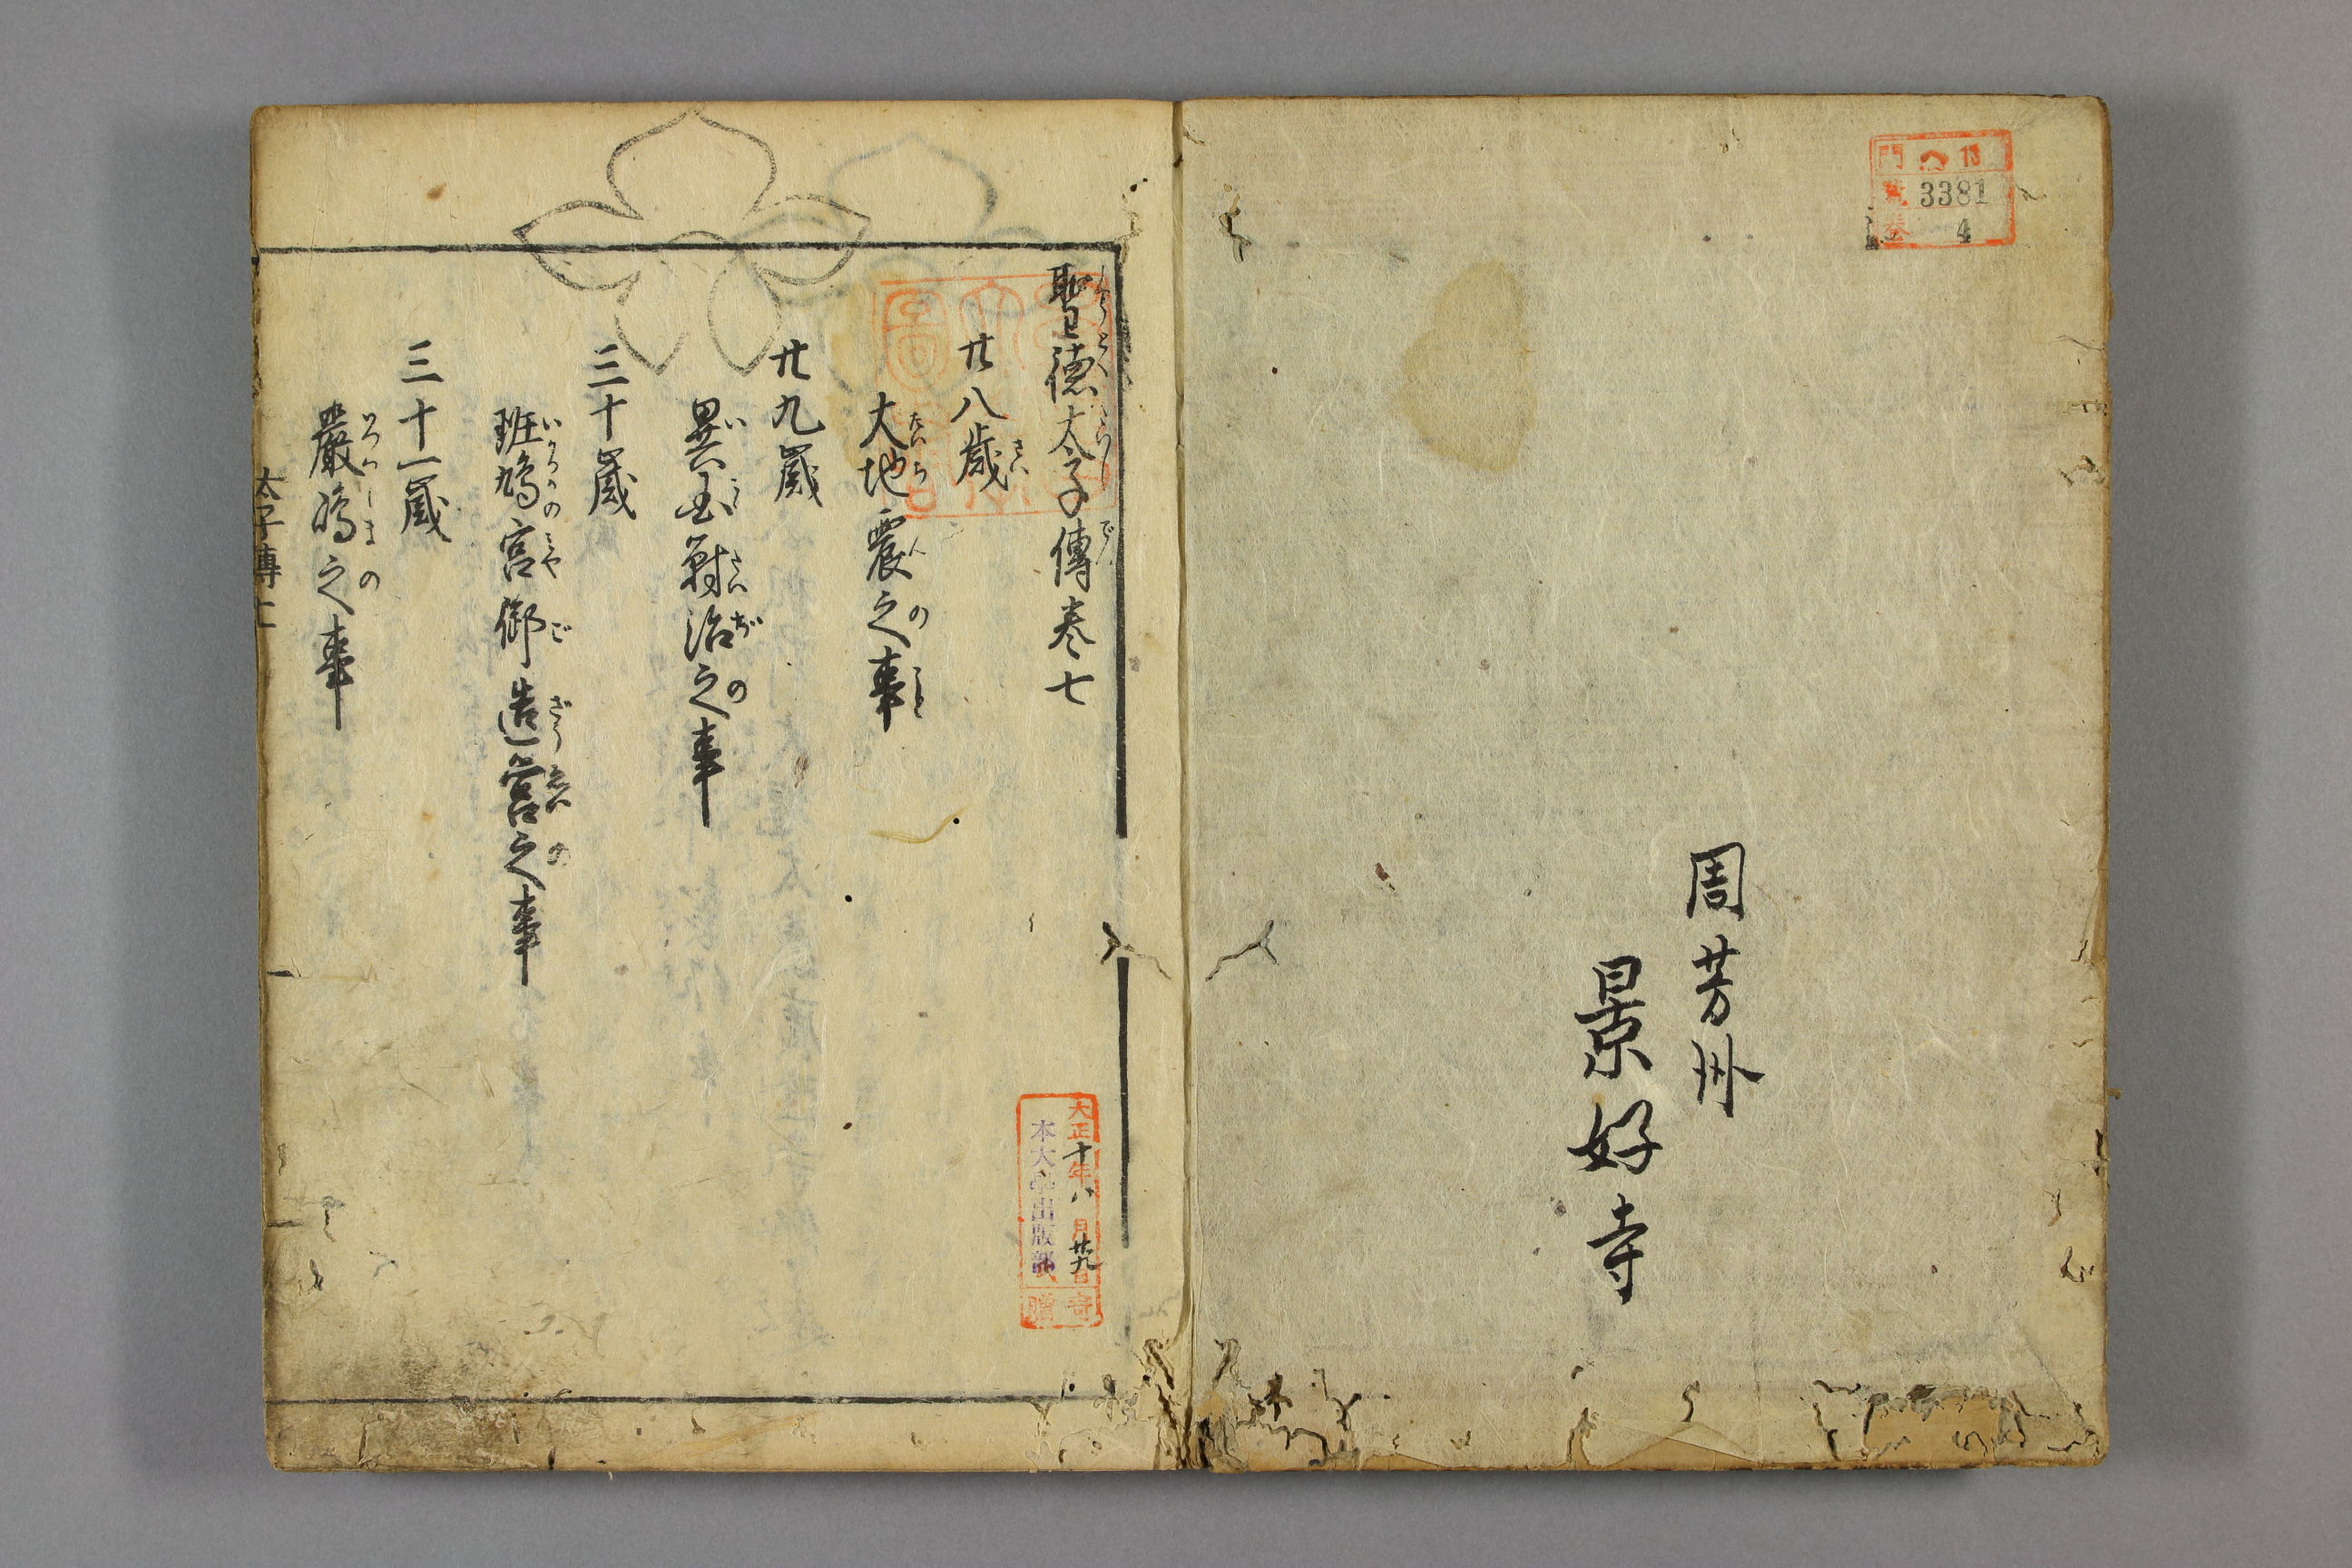 門 へ13
號 3381
卷 4
周芳州
景好寺
聖德太子傳巻七
廿八歳
大地震之事
廿九歳
異国對治之事
三十歳
班鳩宮御造営之事
三十一歳
嚴嶋之事
太子傳七
大正十年八月廿九日寄
本大學出版部贈